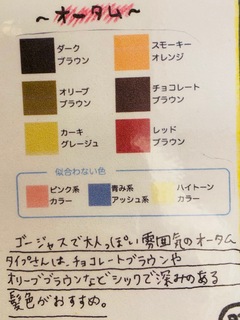 ～オータム～
ダーク
ブラウン
スモーキー
オレンジ
オリーブ
ブラウン
チョコレート
ブラウン
カーキ
グレージュ
レッド
ブラウン
似合わない色
ピンク系
カラー
青み系
アッシュ系
ハイトーン
カラー
ゴージャスで大人っぽい雰囲気のオータム
タイプさんは、チョコレートブラウンや
オリーブブラウンなどシックで深みのある
髪色がおすすめ。